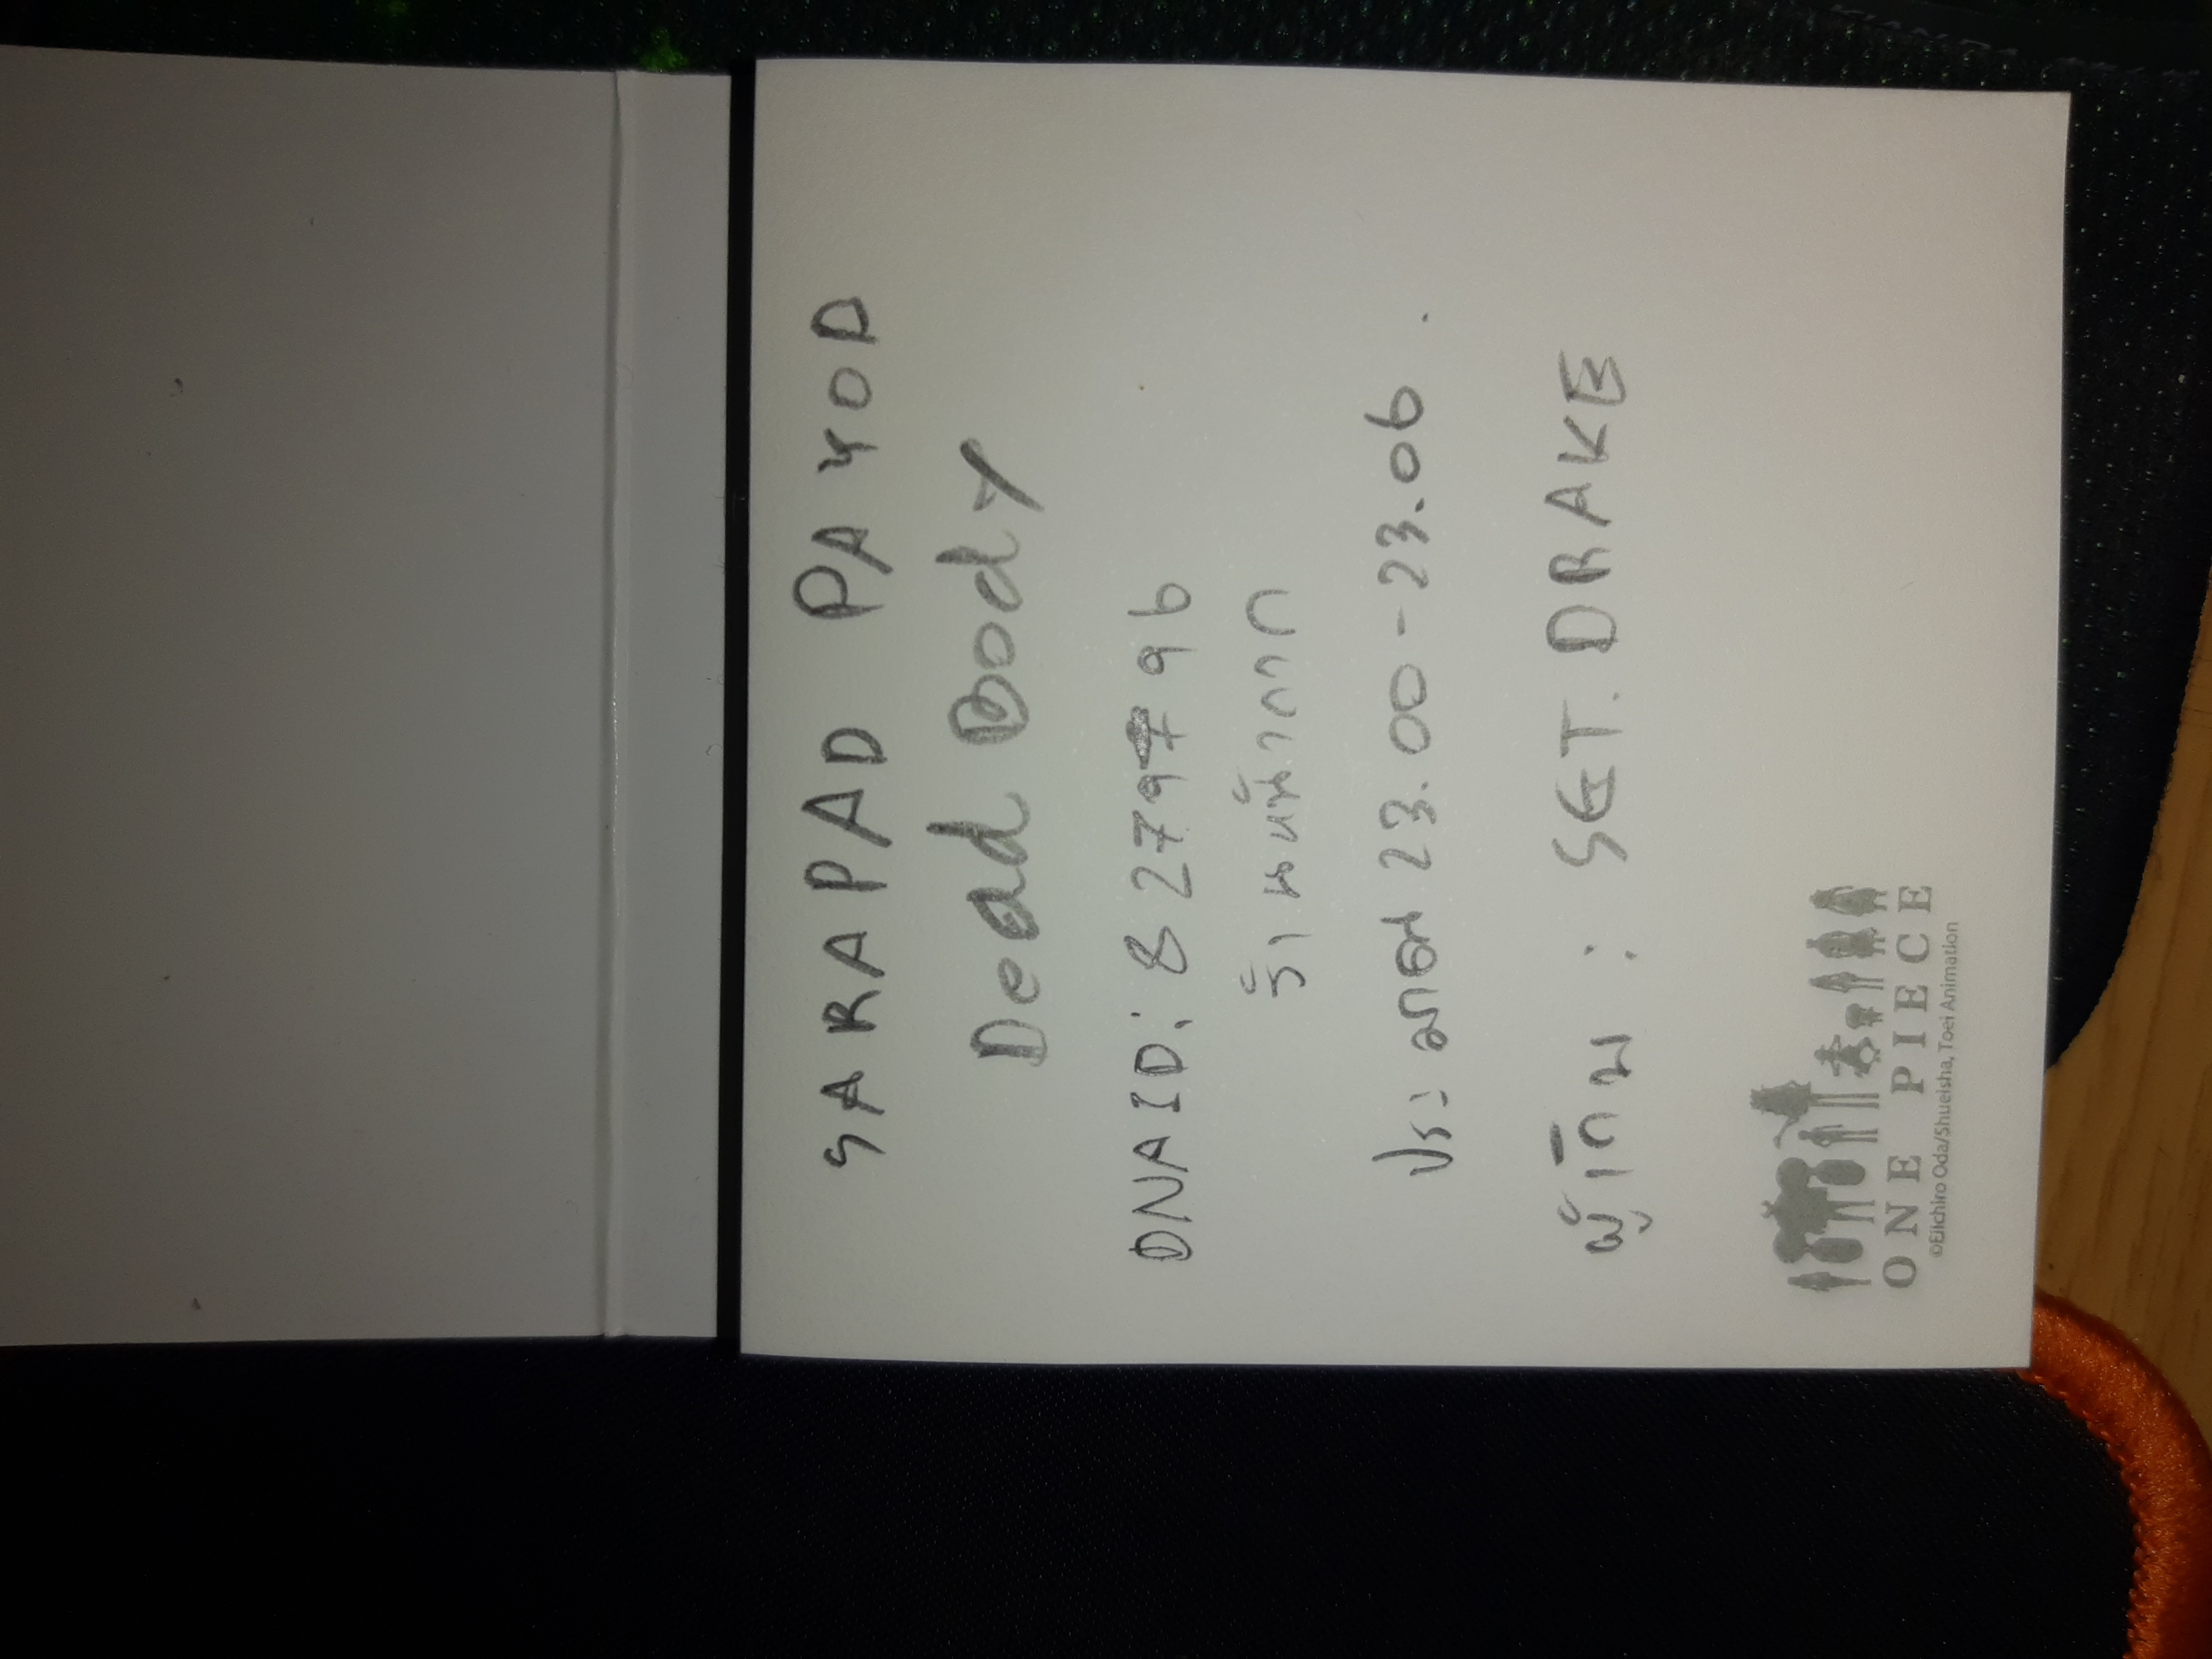 SARAPAD PAYOD
Dead Body
DNAID: 8279796
ร้านหน้ากาก
ประมาณ 23.00-23.06.
ผู้เก็บ : SGT. DRAKE
ONE PIECE
©Eiichiro Oda/Shueisha, Toei Animation